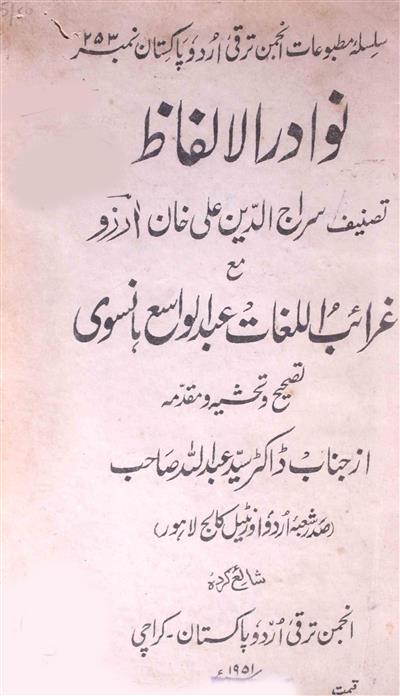 سلسلہ مطبوعات انجمن ترقی اردو پاکستان نمبر ۲۵۳
نوادر الالفاظ
تصنیف سراج الدّین علی خان آرزو
مع
غرائبُ اللغات عبد الواسع ہانسوی
تصحیح و تحشیہ و مقدّمہ
از جناب ڈاکٹر سیّد عبد اللہ صاحب
(صدر شعبۂ اردو اورنٹیل کالج لاہور)
شائع کردہ
انجمن ترقی اُردو پاکستان - کراچی
۱۹۵۱ء
قیمت